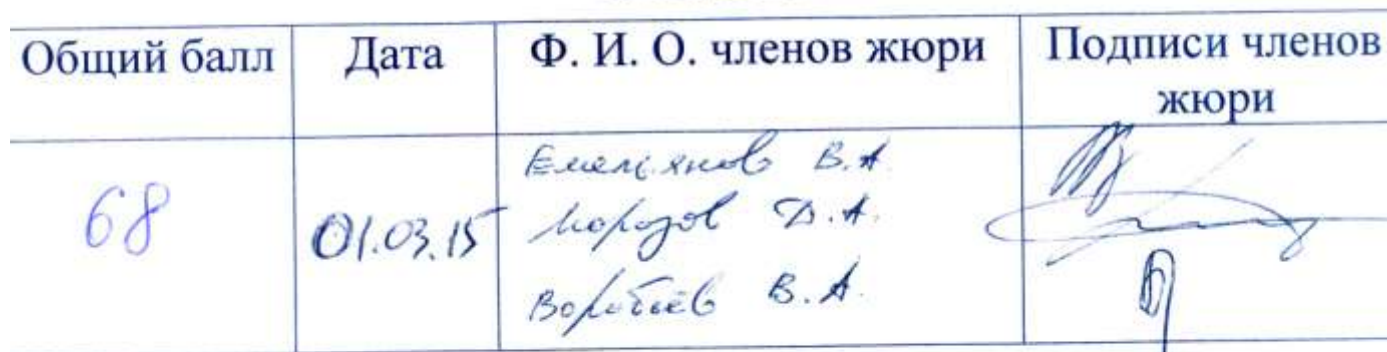 Общий балл Дата Ф. И. О. членов жюри Подписи членов
жюри
Емельянов В.А.
68 01.03.15 Морозов Д.А.
Воробьёв В.А.